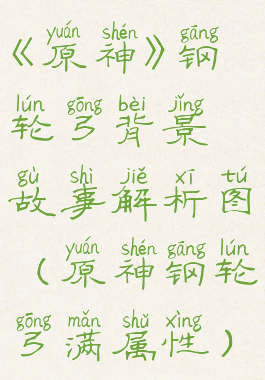 yuán shén gāng
《原神》钢
lún gōng bèi jǐng
轮弓背景
gù shì jiě xī tú
故事解析图
yuán shén gāng lún
(原神钢轮
gōng mǎn shǔ xìng
弓满属性)